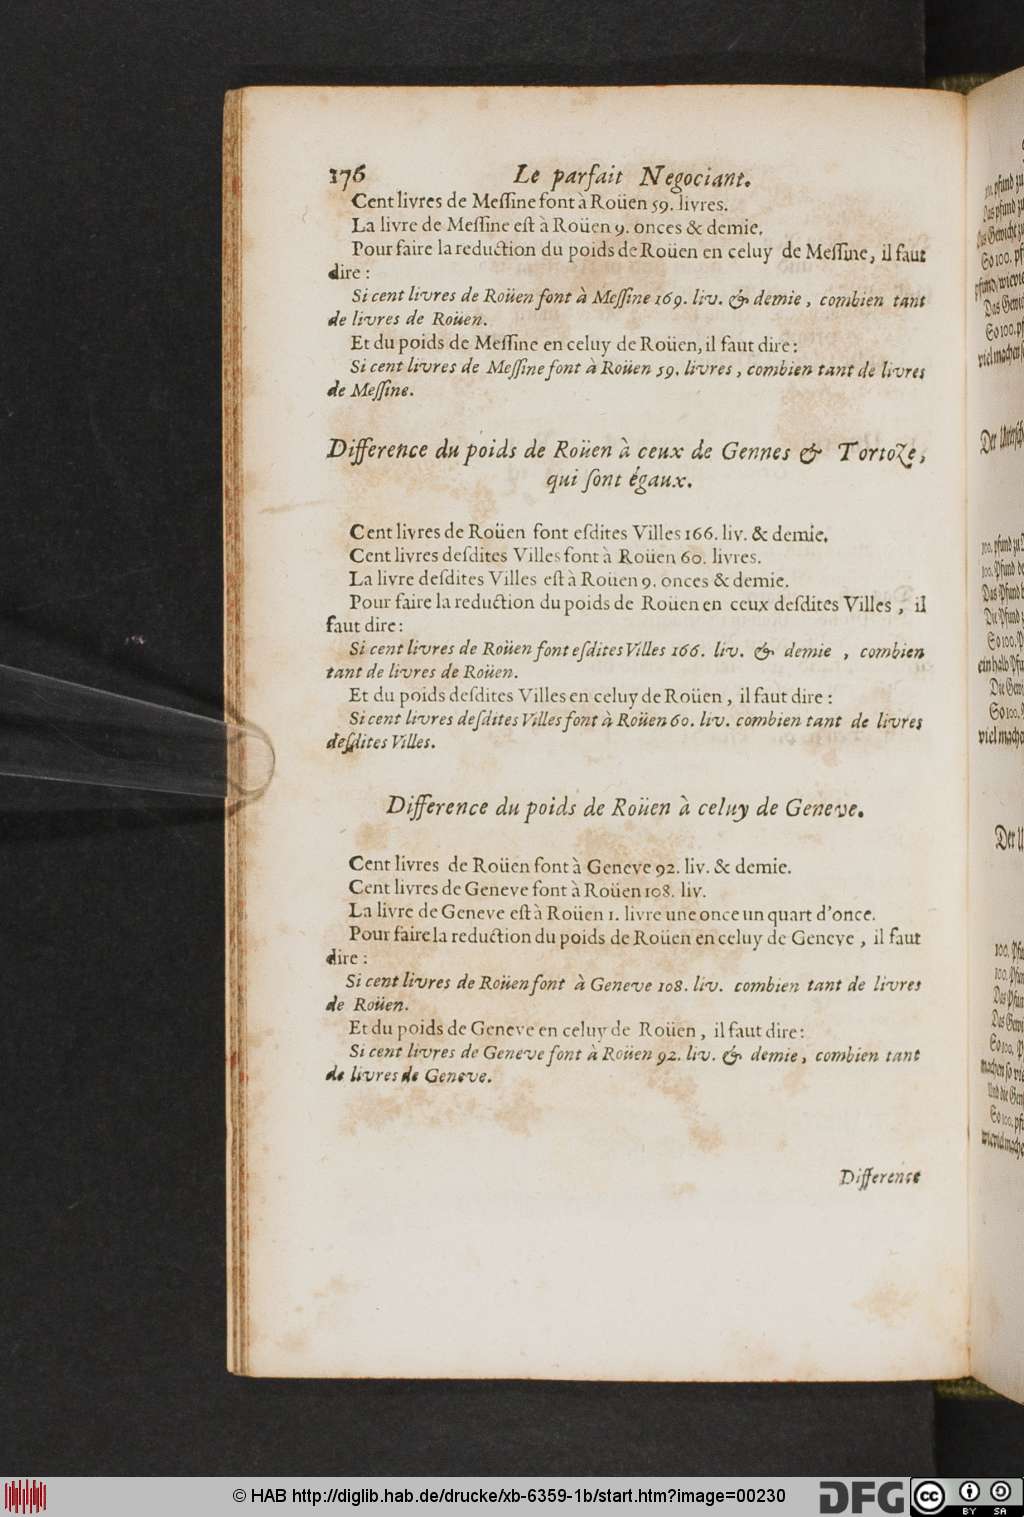 176 Le parfait Negociant.
Cent livres de Meſſine font à Roüen 59. livres.
La livre de Meſſine eſt à Roüen 9. onces & demie.
Pour faire la reduction du poids de Roüen en celuy de Meſſine, il faut
dire :
Si cent livres de Roüen font à Meſſine 169. liv. & demie, combien tant
de livres de Roüen.
Et du poids de Meſſine en celuy de Roüen, il faut dire :
Si cent livres de Meſſine font à Roüen 59. livres, combien tant de livres
de Meſſine.
Difference du poids de Roüen à ceux de Gennes & Tortoze,
qui ſont égaux.
Cent livres de Roüen font eſdites Villes 166. liv. & demie.
Cent livres deſdites Villes font à Roüen 60. livres.
La livre deſdites Villes eſt à Roüen 9. onces & demie.
Pour faire la reduction du poids de Roüen en ceux deſdites Villes, il
faut dire :
Si cent livres de Roüen font eſdites Villes 166. liv. & demie, combien
tant de livres de Roüen.
Et du poids deſdites Villes en celuy de Roüen, il faut dire :
Si cent livres deſdites Villes font à Roüen 60. liv. combien tant de livres
deſdites Villes.
Difference du poids de Roüen à celuy de Geneve.
Cent livres de Roüen font à Geneve 92. liv. & demie.
Cent livres de Geneve font à Roüen 108. liv.
La livre de Geneve eſt à Roüen 1. livre une once un quart d'once.
Pour faire la reduction du poids de Roüen en celuy de Geneve, il faut
dire :
Si cent livres de Roüen font à Geneve 108. liv. combien tant de livres
de Roüen.
Et du poids de Geneve en celuy de Roüen, il faut dire :
Si cent livres de Geneve font à Roüen 92. liv. & demie, combien tant
de livres de Geneve.
Difference
© HAB http://diglib.hab.de/drucke/xb-6359-1b/start.htm?image=00230
DFG
cc BY SA